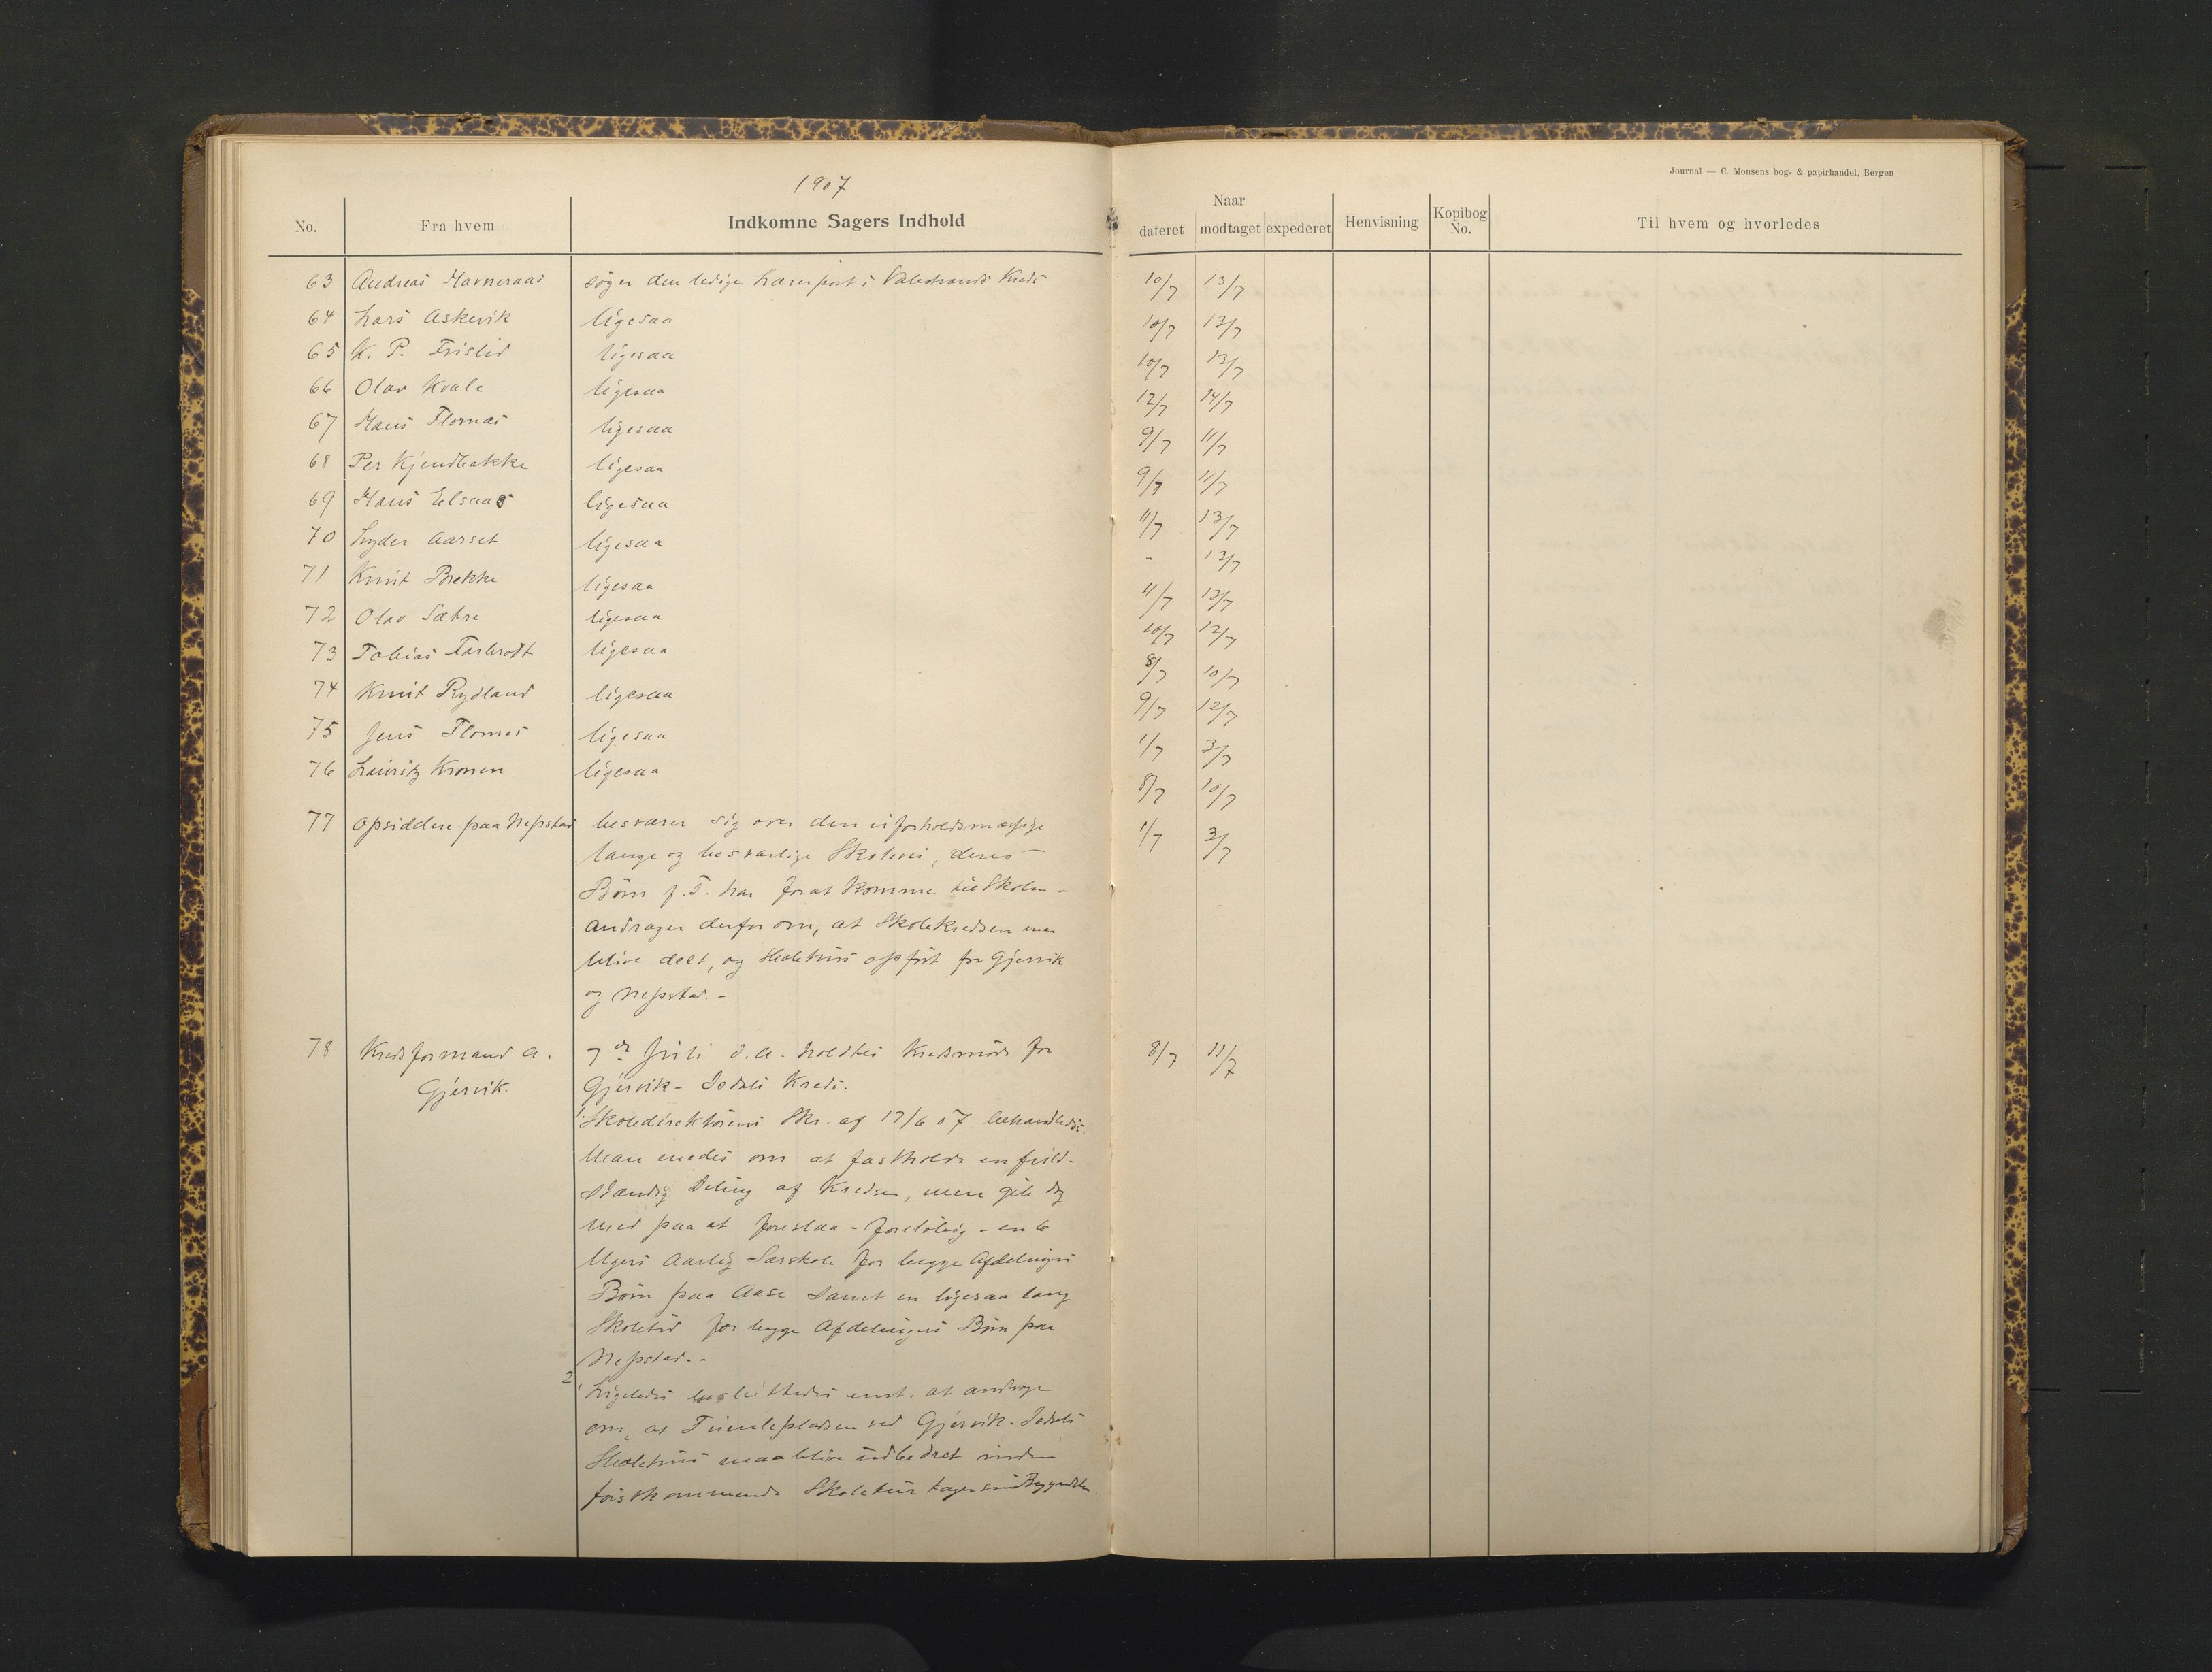 1907
Journal — C. Monsens bog- & papirhandel, Bergen
No. Fra hvem Indkomne Sagers Indhold Naar dateret modtaget expederet Henvisning Kopibog No. Til hvem og hvorledes
63 Andreas Havneraas søger den ledige Lærerpost i Valestrands Kreds 10/7 13/7
64 Lars Askevik ligesaa 10/7 13/7
65 K. P. Frislid ligesaa 10/7 13/7
66 Olav Kvale ligesaa 12/7 14/7
67 Hans Flornæs ligesaa 9/7 11/7
68 Per Kjendbakke ligesaa 9/7 11/7
69 Hans Elsaas ligesaa 11/7 13/7
70 Lyder Aarset ligesaa - 13/7
71 Knut Brekke ligesaa 11/7 13/7
72 Olav Sætre ligesaa 10/7 12/7
73 Tobias ligesaa 8/7 10/7
74 Knut Rydland ligesaa 9/7 12/7
75 Jens Flornes ligesaa 1/7 3/7
76 Lauritz Kronen ligesaa 8/7 10/7
77 Opsiddere paa Nepstad besværer sig over den uforholdsmæssige 1/7 3/7
lange og besværlige Skolevei, deres
Børn p. T. har forat komme til Skolen -
andrager derfor om, at Skolekredsen maa
blive delt, og Skolehus opført for Gjervik
og Nepstad. -
78 Kredsformand A. 7de Juli d. A. holdtes Kredsmøde for 8/7 11/7
Gjervik. Gjervik - Isdals Kreds.
1. Skoledirektørens Skr. af 17/6 07 behandledes.
Man enedes om at fastholde en fuld-
stændig Deling af Kredsen, men gik dog
med paa at foreslaa - foreløbig - en 6
Ugers aarlig Særskole for begge Afdelingers
Børn paa Aase samt en ligesaa lang
Skoletid for begge Afdelingers Børn paa
Nepstad. -
2 Ligeledes besluttedes enst. at andrage
om, at Tumlepladsen ved Gjervik - Isdals
Skolehus maa blive udbedret inden
førstkommende Skoletur tager sin Begyndelse.